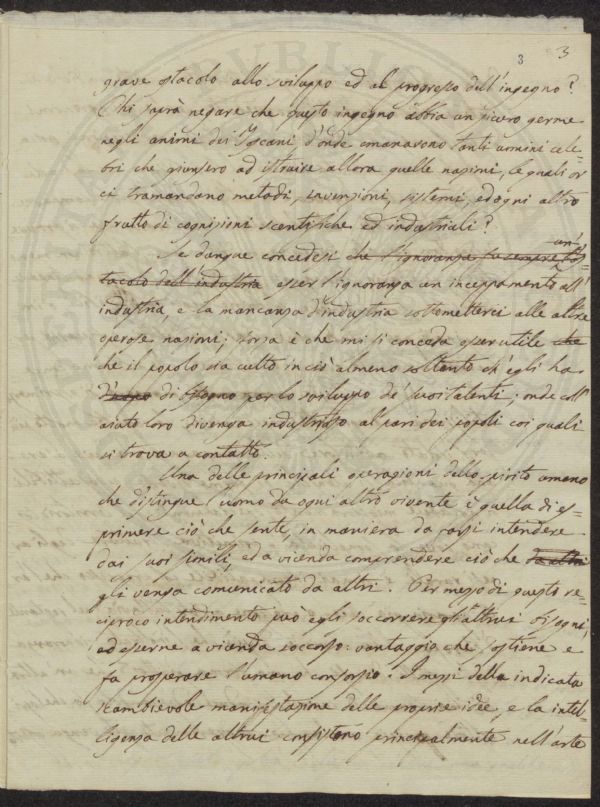 3 3
grave ostacolo allo sviluppo ed al progresso dell'ingegno?
Chi saprà negare che questo ingegno abbia un vivero germe
negli animi dei Toscani, d'onde emanarono tanti uomini cele-
bri che giunsero ad istruire allora quelle nazioni, le quali or
ci tramandano metodi, invenzioni, sistemi, ed ogni altro
frutto di cognizioni scentifiche ed industriali?
Se dunque concedesi che l'ignoranza fu sempre un os-
tacolo dell'industria esser l'ignoranza un inceppamento all'
industria, e la mancanza d'industria sottometterci alle altre
operose nazioni; forza è che mi si conceda esser utile che
che il popolo sia culto in ciò almeno soltanto ch'egli ha
d'uopo di bisogno per lo sviluppo de' suoi talenti; onde coll'
aiuto loro divenga industrioso al pari dei popoli coi quali
si trova a contatto.
Una delle principali operazioni dello spirito umano
che distingue l'uomo da ogni altro vivente è quella di es-
primere ciò che sente, in maniera da farsi intendere
dai suoi simili, ed a vicenda comprendere ciò che da altri
gli venga comunicato da altri. Per mezzo di questo re-
ciproco intendimento può egli soccorrere gli altrui bisogni,
ed esserne a vicenda soccorso: vantaggio che sostiene e
fa prosperare l'umano consorzio. I mezzi della indicata
scambievole manifestazione delle proprie idee, e la intel-
ligenza delle altrui consistono principalmente nell'arte